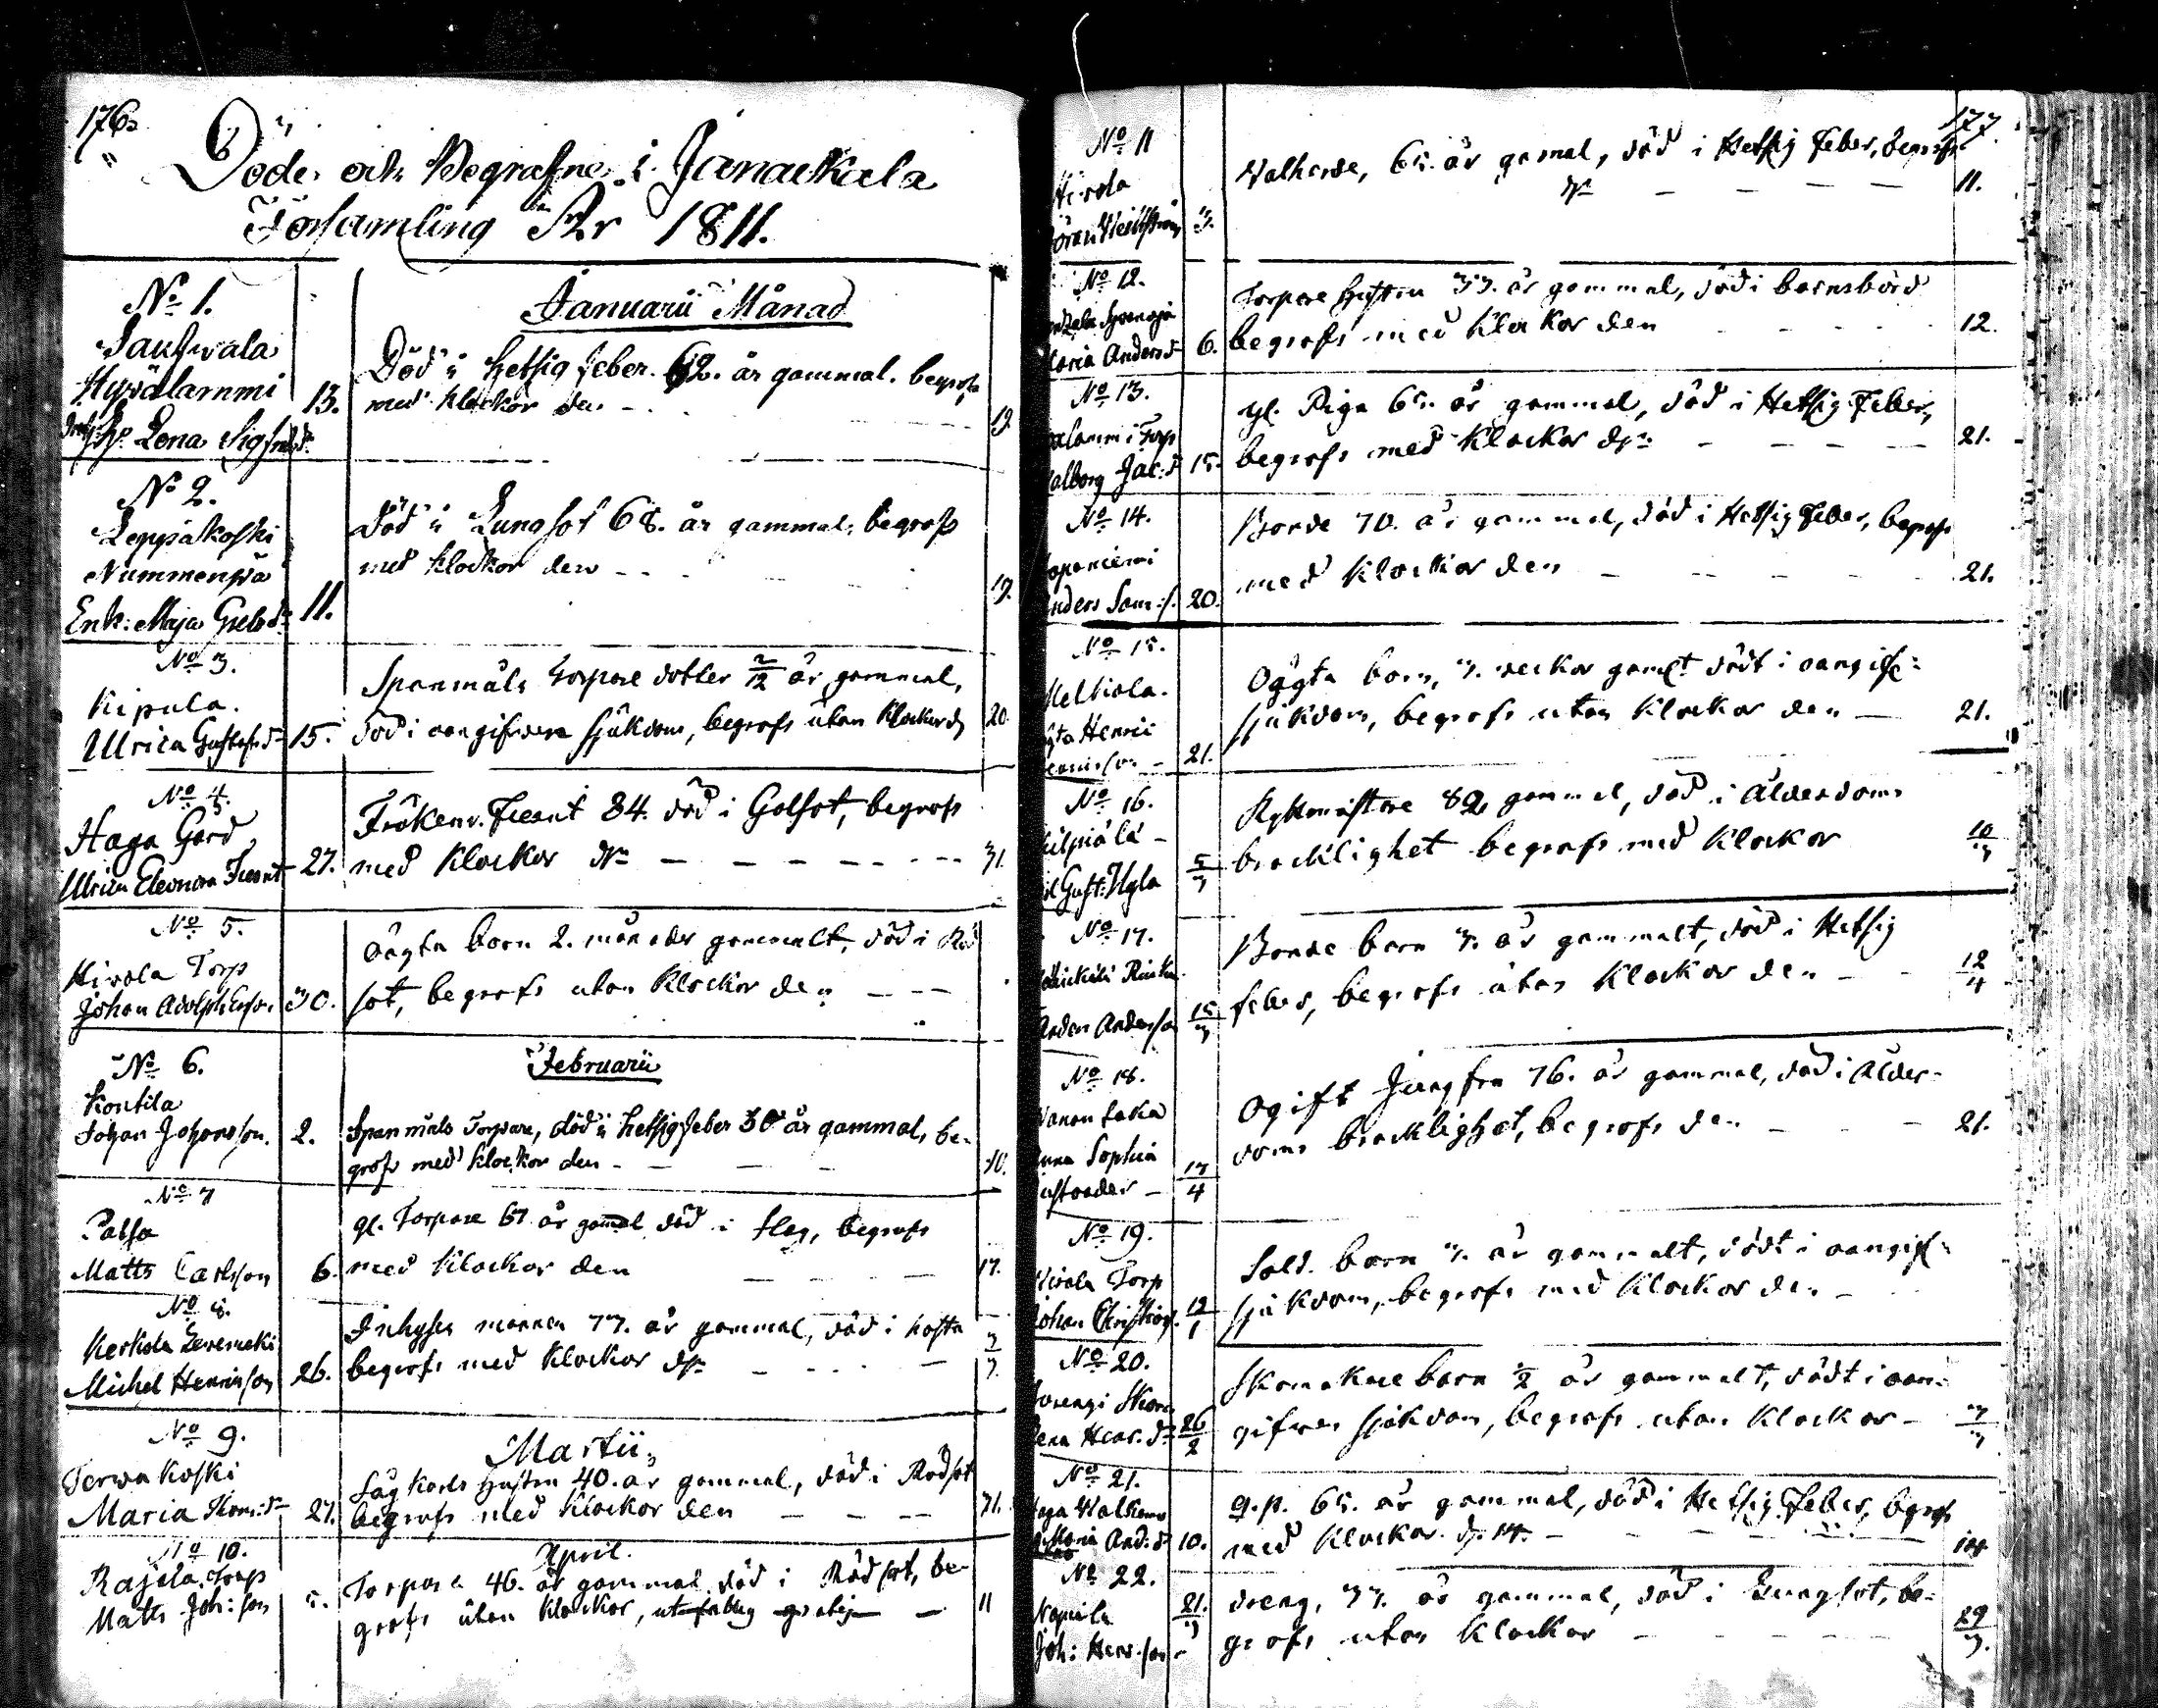 176.
Döde och Begrafne i Janackala
Församling År 1811.
Januarii Månad
No 1.
Hyvälammi
Lena Sigfredsdr
13.
Död i Hetsig feber 62. år gammal. begrofs
med klockor den
19.
No 2.
Leppäkoski
Nummenpä
Enk: Maja
11.
Död i Lungsot 68. år gammal, begrofs
med klockor den
19.
No 3.
Kipula.
Ulrica Gustafsdr
15.
Spanmåls Torpare dotter 2/12 år gammal,
död i oangifven sjukdom, begrofs utan klockor d
20.
No 4.
Haga Gård
Ulrica Eleonora
27.
Fröken v. 84. död i Golsot, begrofs
med klockor dn
31.
No 5.
Hivola Torp
Johan Adolph
30.
oägta barn 2. månader gammalt, död i Röd
sot, begrofs utan klockor den
Februarii
No 6.
Kontila
Johan Johansson.
2.
Spanmåls Torpare, död i hetsig feber 50 år gammal, be-
grofs med klockor den
10.
No 7
Matts Carlsson
6.
gl. Torpare 67 år gamal död i slag, begrofs
med klockor den
17.
No 8.
Michel Henricsson
26.
Inhyses mannen 77. år gammal, död i hosta
begrofs med klockor dn
3/3.
Martii
No 9.
Terwakoski
Maria
27.
Sågkarls hustru 40. år gammal, död i Rödsot
begrofs med klockor den
31.
April.
No 10.
Rajala Torp
Matts Joh: son
5.
Torpare 46. år gammal död i Rödsot, be-
grofs utan klockor,
11
177.
No 11
Hivola
3.
65. år gamal, död i Hetsig feber, begrofs
dn
11.
No 12.
Maria Andersd
6.
Torpare hustru 33. år gammal, död i barnsbörd
begrofs med klockor den
12.
No 13.
Torp
Valborg Jac: d
15.
gl. Piga 65. år gammal, död i Hetsig Feber,
begrofs med klockor dn
21.
No 14.
Anders Sam: s.
20.
Bonde 70. år gammal, död i Hetsig Feber, begrofs
med klockor den
21.
No 15.
Melkiola.
21.
Oägta barn, 3. veckor gamlt dödt i oangifv:
sjukdom, begrofs utan klockor den
21.
No 16.
Gust: Ugla
5/3
Ryttmästare 82 gammal, död i Ålderdoms
bräcklighet begrofs med klockor
10/3
No 17.
Andersson
15/3
Bonde barn 3. år gammalt, död i Hetsig
feber, begrofs utan klockor den
12/4
No 18.
Anna Sophia
17/4
Ogift Jungfru 76. år gammal, död i Ålder-
doms bräcklighet, begrofs den
21.
No 19.
Hivola Torp
Johan
12/1
Sold. barn 3. år gammalt, dödt i oangif:
sjukdom, begrofs med klockor den
No 20.
26/2
Skomakare barn 1/2 år gammalt, dödt i oan-
gifven sjukdom, begrofs utan klockor
3/3
No 21.
Maria And: d
10.
q.p. 65. år gammal, död i Hetsig Feber, begrofs
med klockor d. 14.
14
No 22.
Napiala
21./3
dreng, 33. år gammal, död i Lungsot, be-
grofs utan klockor
29/3.